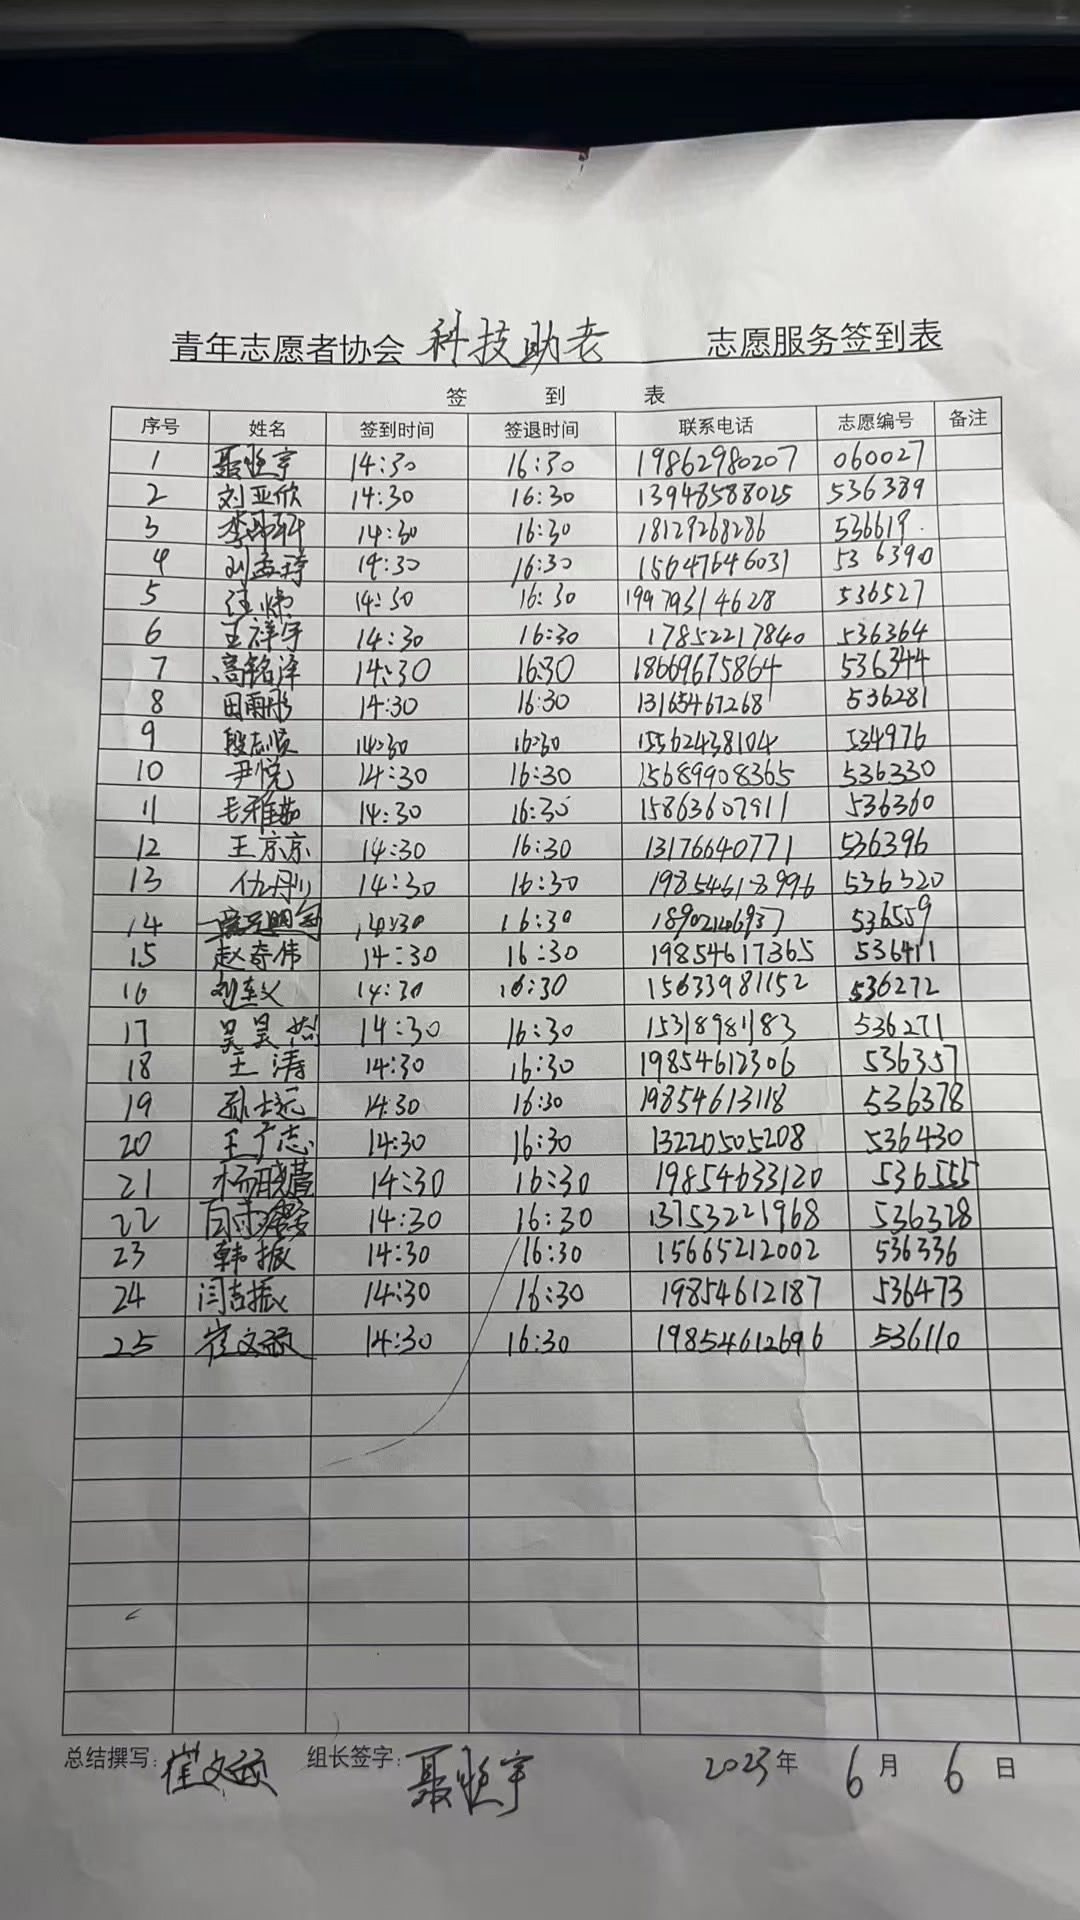 青年志愿者协会 科技助老 志愿服务签到表
签 到 表
序号 姓名 签到时间 签退时间 联系电话 志愿编号 备注
1 聂恒宇 14:30 16:30 19862980207 060027
2 刘亚欣 14:30 16:30 13948588025 536389
3 14:30 16:30 18129268286 536619
4 刘孟琦 14:30 16:30 15647646031 536390
5 汪炜 14:30 16:30 19979314628 536527
6 王祥宇 14:30 16:30 17852217840 536364
7 高铭泽 14:30 16:30 18669675864 536344
8 田雨彤 14:30 16:30 13165467268 536281
9 段志顺 14:30 16:30 15562438104 534976
10 尹悦 14:30 16:30 15689908365 536330
11 毛雅茹 14:30 16:30 15863607911 536360
12 王京京 14:30 16:30 13176640771 536396
13 14:30 16:30 19854618996 536320
14 14:30 16:30 18902146937 536559
15 赵奇伟 14:30 16:30 19854617365 536411
16 14:30 16:30 15633981152 536272
17 吴昊然 14:30 16:30 15318981183 536271
18 王涛 14:30 16:30 19854612306 536357
19 孙士远 14:30 16:30 19854613118 536378
20 王广志 14:30 16:30 13220505208 536430
21 杨晓萱 14:30 16:30 19854633120 536555
22 14:30 16:30 13753221968 536328
23 韩振 14:30 16:30 15665212002 536336
24 闫吉振 14:30 16:30 19854612187 536473
25 崔文硕 14:30 16:30 19854612696 536110
总结撰写: 崔文硕 组长签字: 聂恒宇 2023年 6月 6日